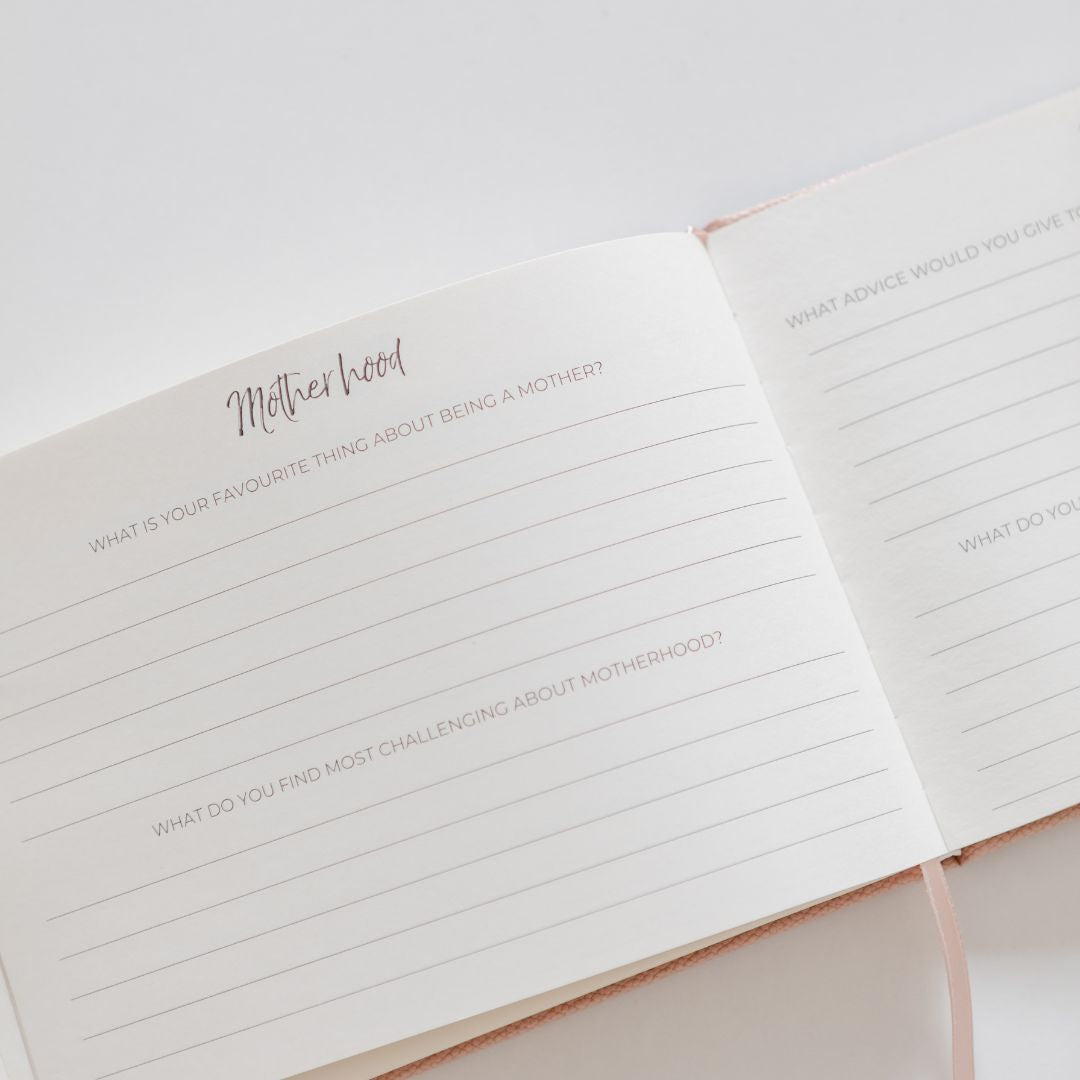 Motherhood
WHAT IS YOUR FAVOURITE THING ABOUT BEING A MOTHER?
WHAT DO YOU FIND MOST CHALLENGING ABOUT MOTHERHOOD?
WHAT ADVICE WOULD YOU GIVE TO
WHAT DO YOU